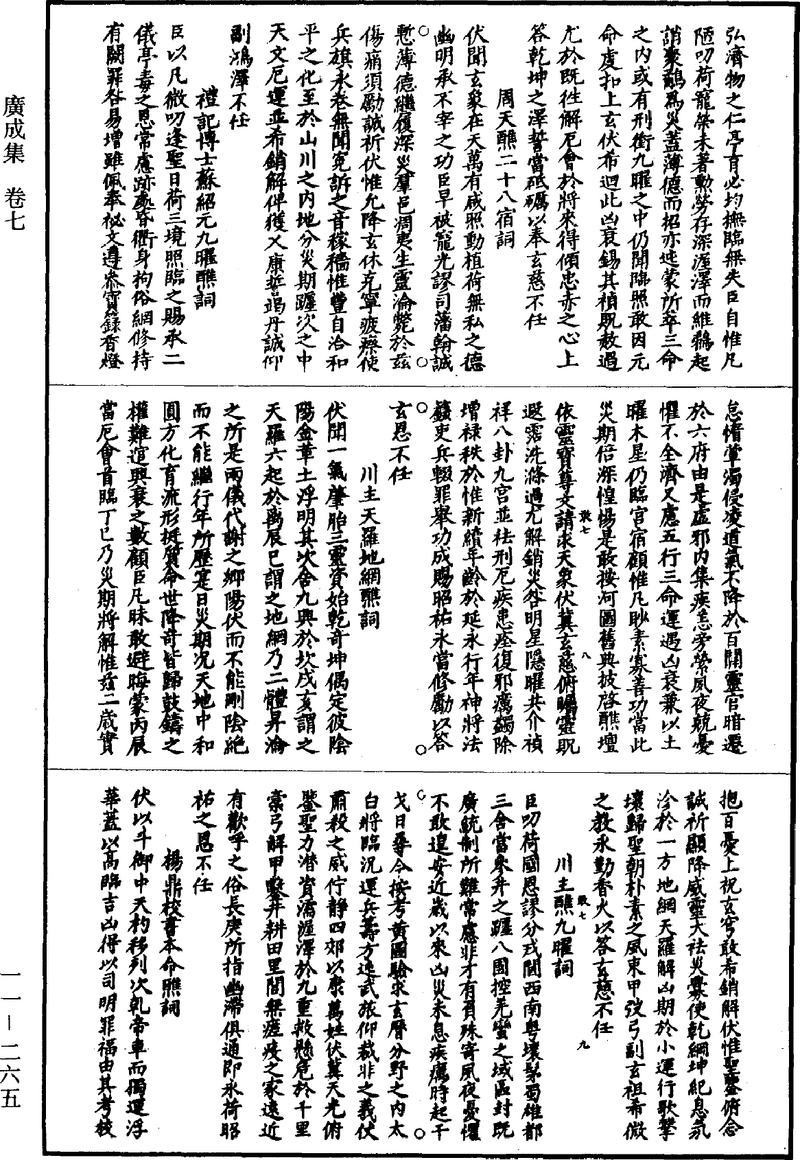 廣成集　卷七
弘濟物之仁亭育必均撫臨無失臣自惟凡
陋叨荷寵榮未著勳勞存深渥澤而維鵜起
誚聚鷸為災蓋薄德而招亦速蒙所萃三命
之內或有刑衝九曜之中仍聞臨照敢因元
命虔扣上玄伏希迴此凶衰錫其禎貺赦過
尤於既往解厄會於將來得傾忠赤之心上
答乾坤之澤誓當砥礪以奉玄慈不任
周天醮二十八宿詞
伏聞玄象在天萬有咸照動植荷無私之德
幽明承不宰之功臣早被寵光謬司藩翰誠
慙薄德繼履深災羣邑凋夷生靈淪斃於茲
傷痛須勵誠祈伏惟允降玄休克寧疲瘵使
兵旗永卷無聞冤訴之音稼穡惟豐自洽和
平之化至於山川之內地分災期躔次之中
天文厄運並希銷解俾獲乂康誓竭丹誠仰
副鴻澤不任
禮記博士蘇紹元九曜醮詞
臣以凡微叨逢聖日荷三境照臨之賜承二
儀亭毒之恩常慮跡處昏衢身拘俗網修持
有闕罪咎易增雖佩奉祕文遵參寶籙香燈
怠惰葷濁侵凌道氣不降於百關靈官暗遷
於六府由是虛邪內集疾恙旁縈夙夜兢憂
懼不全濟又慮五行三命運遇凶衰兼以土
曜木星仍臨宮宿顧惟凡眇素寡善功當此
災期倍深惶惕是敢按河圖舊典披啓醮壇
依靈寶尊文請求天象伏冀玄慈俯賜靈貺
遐霑洗滌過尤解銷災咎明星隱曜共介禎
祥八卦九宮並袪刑厄疾患痊復邪癘蠲除
增祿秩於惟新續年齡於延永行年神將法
籙吏兵輟罪舉功成賜昭祐永當修勵以答
玄恩不任
川主天羅地網醮詞
伏聞一氣肇胎三靈資始乾奇坤偶定彼陰
陽金華土浮明其次舍九興於坎戌亥謂之
天羅六起於离辰巳謂之地網乃二體昇淪
之所是兩儀代謝之鄉陽伏而不能剛陰絕
而不能繼行年所歷寔曰災期况天地中和
圓方化育流形挺質命世降奇皆歸鼓鑄之
權難逭興衰之數顧臣凡昧敢避晦蒙丙辰
當厄會首臨丁巳乃災期將解惟茲二歲實
抱百憂上祝玄穹敢希銷解伏惟聖靈俯念
誠祈顯降威靈大袪災釁使乾綱坤紀息氛
沴於一方地網天羅解凶期於小運行歌擊
壤歸聖朝朴素之風束甲弢弓副玄祖希微
之教永勤香火以答玄慈不任
川主醮九曜詞
臣叨荷國恩謬分戎閫西南粵壤鬃蜀雄都
三舍當參井之躔八國控羌蠻之域區封既
廣統制所難常慮非才有負殊寄夙夜憂懼
不敢遑安近歲以來凶災未息疾癘時起干
戈日尋今按考黃圖驗求玄曆分野之內太
白將臨況運兵籌方遠武旅仰裁非之義伏
肅殺之威佇靜四郊以康萬姓伏冀天光俯
鑒聖力潛資濡渥澤於九重救懸危於千里
櫜弓解甲鑿井耕田里閭無疵疫之家遠近
有歡呼之俗長庚所指幽滯俱通即永荷昭
祐之恩不任
楊鼎校書本命醮詞
伏以斗御中天杓移列次乾帝車而獨運浮
華蓋以高臨吉凶得以司明罪福由其考校
敢七
八
敢七
九
一一－二六五